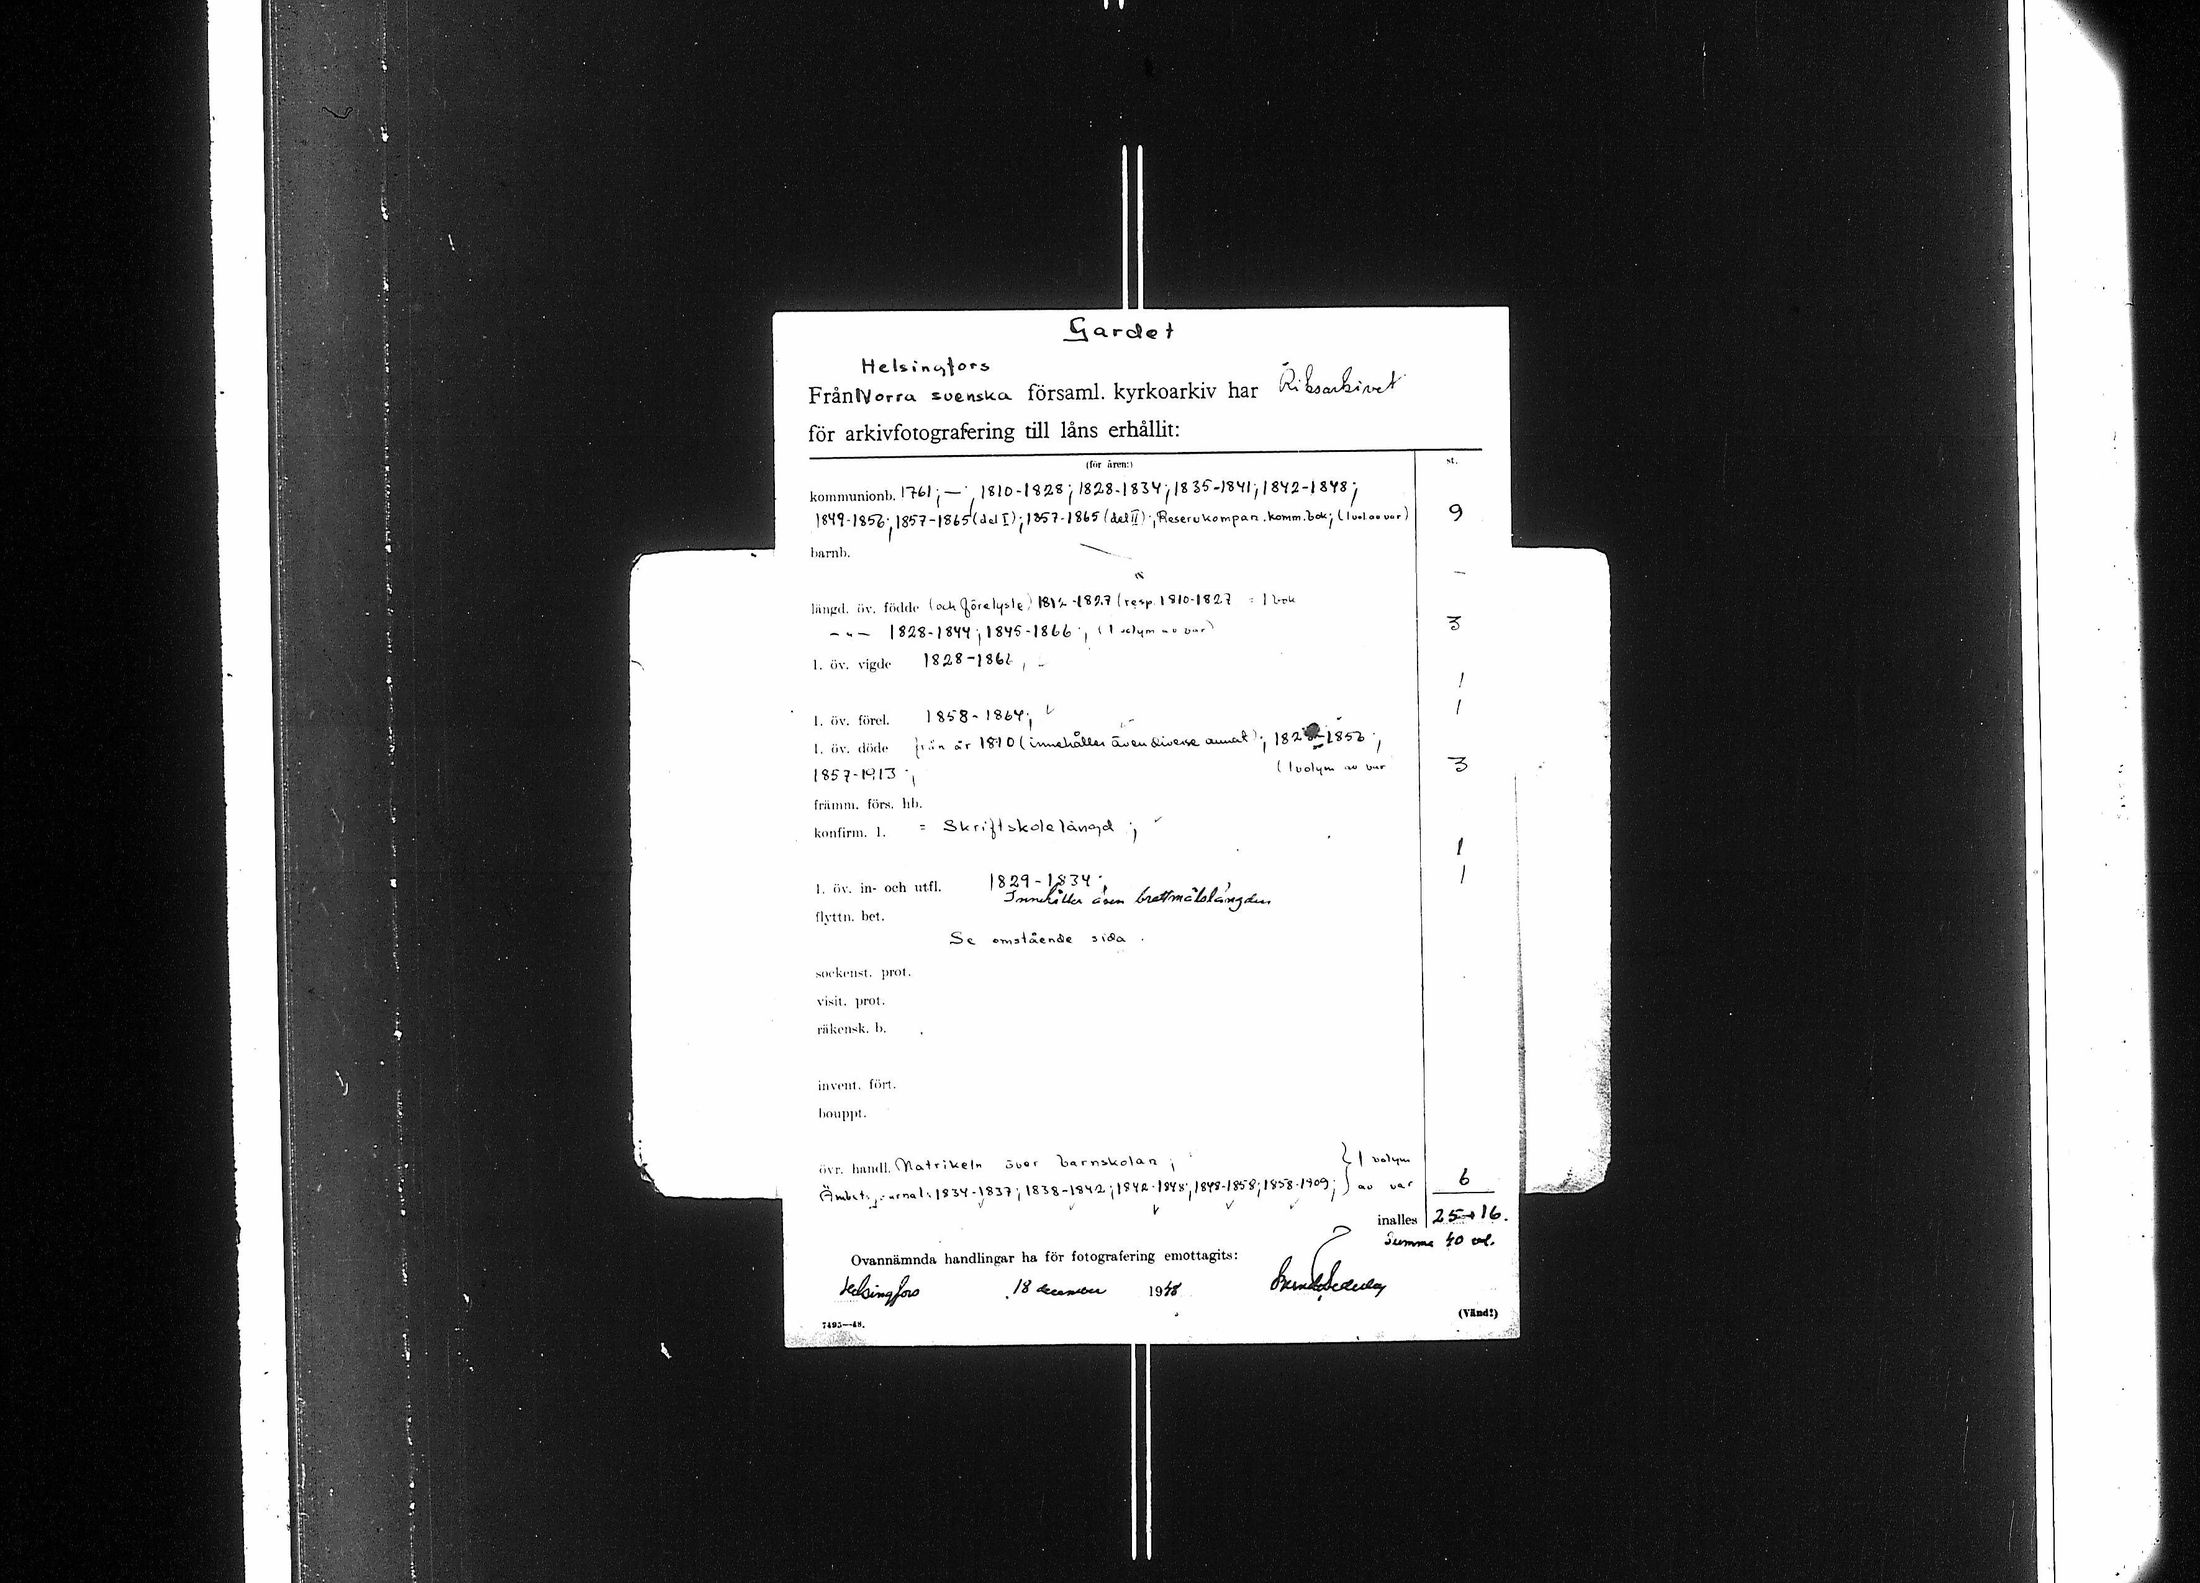 Gardet
Helsingfors
Från Norra svenska församl. kyrkoarkiv har Riksarkivet
för arkivfotografering till låns erhållit:
(för åren:) st.
kommunionb. 1761; —; 1810-1828; 1828-1834; 1835-1841; 1842-1848;
1849-1856; 1857-1865 (del I); 1857-1865 (del II); Reservkompan. komm.bok; (1 vol. av var) 9
barnb. —
längd. öv. födde (och förelyste) 1812-1827 (resp. 1810-1827 = 1 bok
– " – 1828-1844; 1845-1866; (1 volym av var) 3
l. öv. vigde 1828-1866; 1
l. öv. förel. 1858-1864; 1
l. öv. döde från år 1810 (innehåller även diverse annat); 1828-1856;
1857-1913; (1 volym av var 3
främm. förs. hb.
konfirm. l. = Skriftskolelängd; 1
l. öv. in- och utfl. 1829-1834. 1
Innehåller även brottmålslängden
flyttn. bet.
Se omstående sida.
sockenst. prot.
visit. prot.
räkensk. b.
invent. fört.
bouppt.
övr. handl. Matrikeln över barnskolan; } 1 volym
Ämbetsjournal: 1834-1837; 1838-1842; 1842-1848; 1848-1858; 1858-1909; } av var 6
inalles 25+16.
Summa 40 vol.
Ovannämnda handlingar ha för fotografering emottagits:
Helsingfors 18 december 1948
(Vänd!)
7495—48.